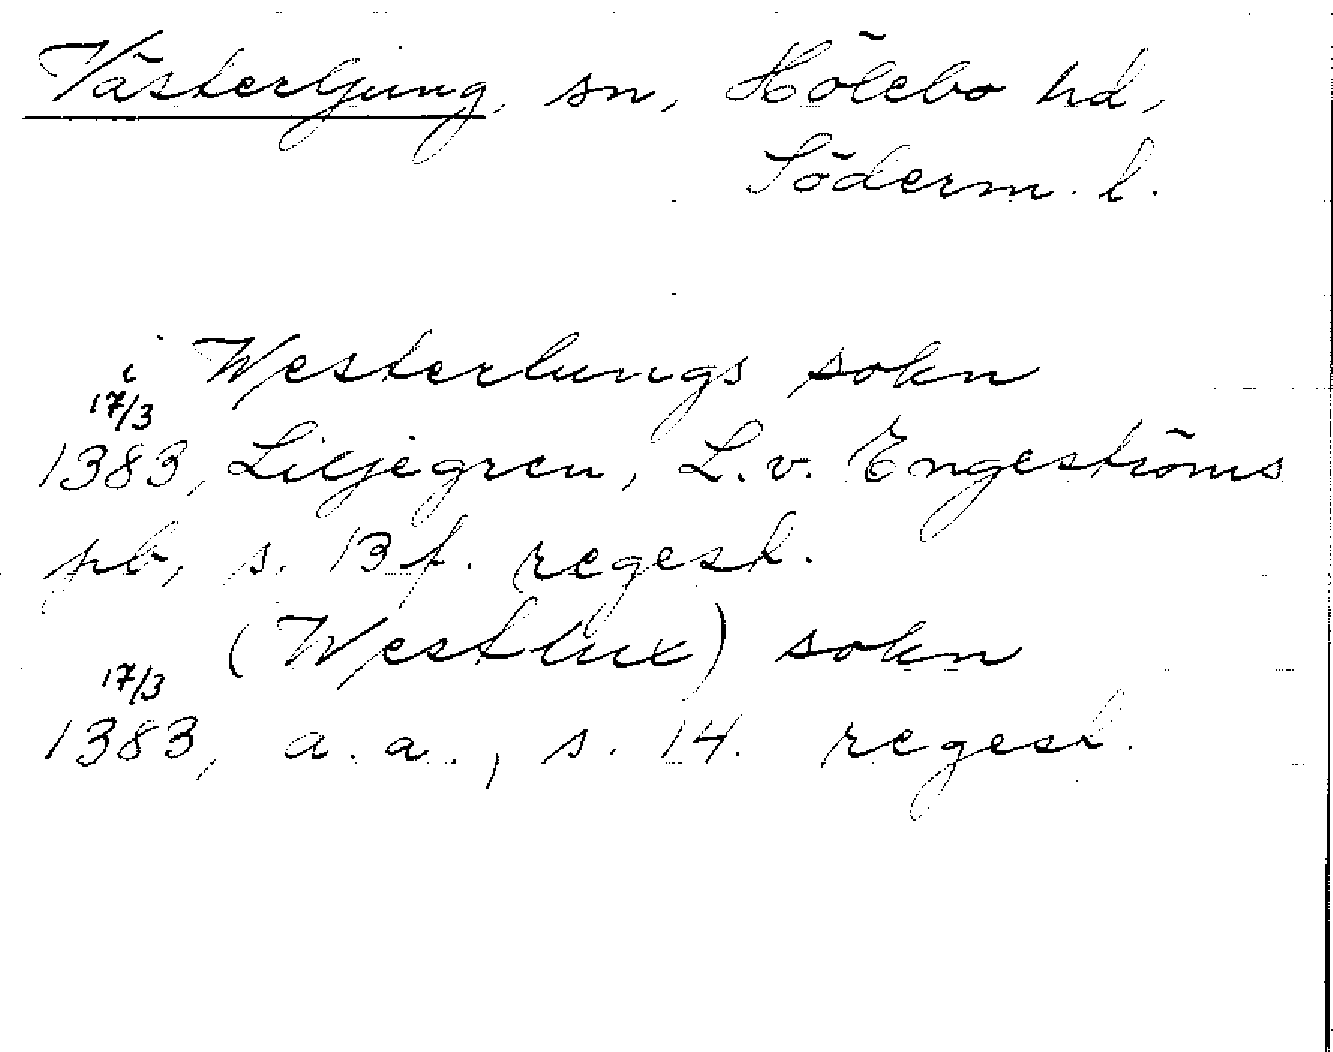 Västerljung, sn, Hölebo hd,
Söderm. l.
i Westerlungs sokn
17/3
1383, Liljegren, L. v. Engeströms
pb, s. 13 f. regest.
(Westlux) sokn
17/3
1383, a. a., s. 14. regest.